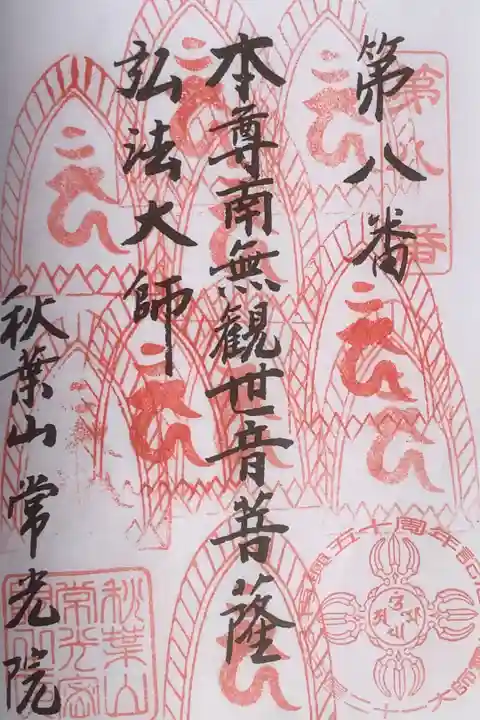 第八番
本尊南無観世音菩薩
弘法大師
秋葉山常光院
第八番
五十周年記
二十一大師
秋葉山
常光密